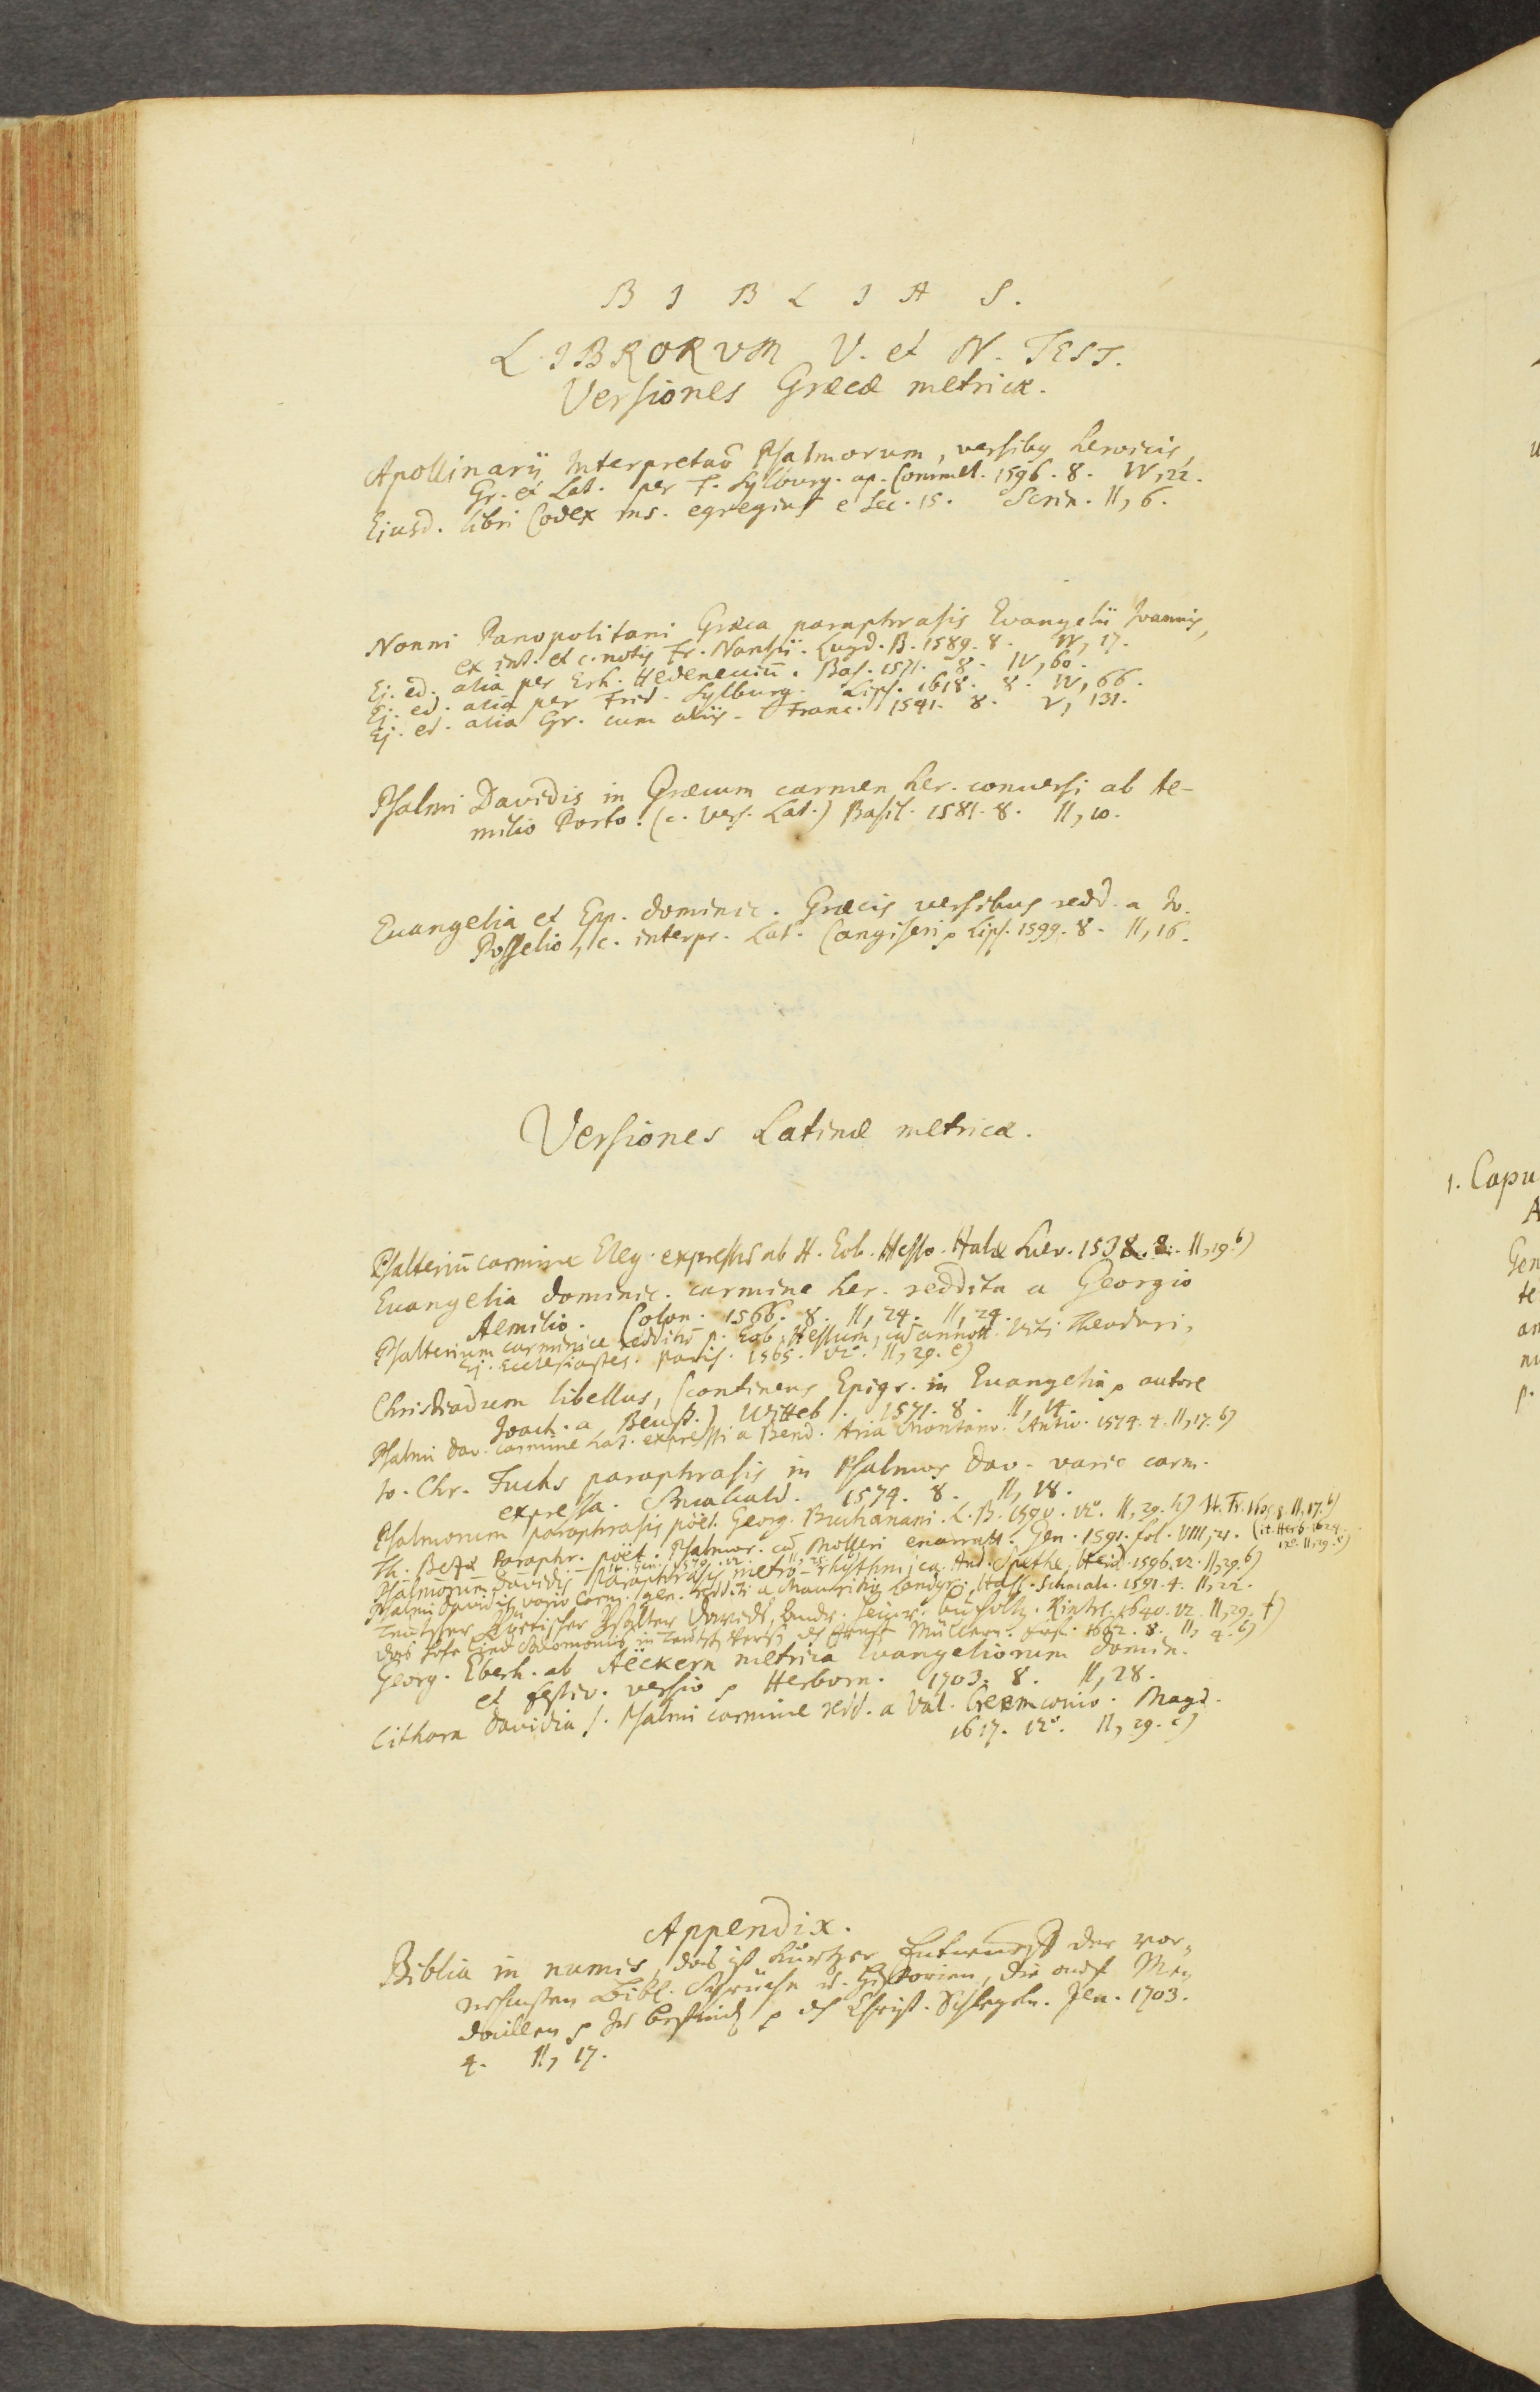 B I B L I A S.
LIBRORVM V. et N. TEST.
Versiones Græcæ metricæ.
Apollinarii Interpretaō Psalmorum, versibg heroicis,
Gr. et Lat. per F. Sylburg. ap. Commel. 1596. 8. IV, 22.
Ejusd. libri Codex ms. egregius e Sec. 15. Scrin. II, 6.
Nonni Panopolitani Græca paraphrasis Evangelii Ioannis,
ex int. et c. notis Fr. Nansii. Lugd. B. 1589. 8. IV, 17.
Ej. ed. alia per Erh. Hedeneccium. Bas. 1571. 8. IV, 60.
Ej. ed. alia per Frid. Sylburg. Lips. 1618. 8. IV, 66.
Ej. ed. alia Gr. cum aliis. Franc. 1541. 8. V, 131.
Psalmi Davidis in Græcum carmen her. conuersi ab Ae-
milio Porto. (c. vers. Lat.) Basil. 1581. 8. II, 10.
Euangelia et Epp. dominic. Græcis versibus redd. a Io.
Posselio, c. interpr. Lat. Cangiseri, Lips. 1599. 8. II, 16.
Versiones Latinæ metricæ.
Psalteriū carmine Eleg. expressū ab H. Eob. Hesso. Halæ Suev. 1538. 8. II, 29. b)
Euangelia dominic. carmine her. reddita a Georgio
Aemilio. Colon. 1566. 8. II, 24. II, 24.
Psalterium carminice redditū p. Eob. Hessum, cū annott. Viti Theodori,
Ej. Ecclesiastes. Paris. 1565. 12°. II, 29. e)
Christiadum libellus, (continens Epigr. in Euangelia, autore
Joach. a Beust.) Witteb. 1571. 8. II, 14.
Psalmi Dav. carmine Lat. expressi a Bened. Aria Montano. Antw. 1574. 4. II, 17. b)
Io. Chr. Fuchs paraphrasis in Psalmos Dav. vario carm.
expressa. Smalcald. 1574. 8. II, 18.
Psalmorum paraphrasis poët. Georg. Buchanani. L. B. 1590. 12°. II, 29.
Th. Bezæ Paraphr. poët. Psalmor. cū Molleri enarratt. Gen. 1591. fol. VIII, 21. (it. Herb. 1624.
Psalmorum Davidis Paraphrasis metro-rhythmica. And. Spethe. Heid. 1596. 12. II, 29. b)
Psalmi Davidis vario Carm. gen. redditi a Mauritio Landgr. Hass. Schmalc. 1591. 4. II, 22.
Teutscher Poetischer Psalter Davids, Andr. Heinr. Bucholtz. Rintel. 1640. 12. II, 29. f)
das hohe Lied Salomonis, in Teutsche Verse
Georg. Eberh. ab Aëckern metrica Evangeliorum domin.
et festiv. versio, Herborn. 1703. 8. II, 28.
Cithara Davidia s. Psalmi carmine redd. a Val. Cremconio. Magd.
1617. 12°. II, 29. c)
Appendix.
Biblia in numis, das ist kurtzer Entwurff der vor-
nehmsten Bibl. Sprüche u. Historien, die auf Me-
daillen
Christ. Schlegeln. Jen. 1703.
4. II, 17.
1. Capu
Gen